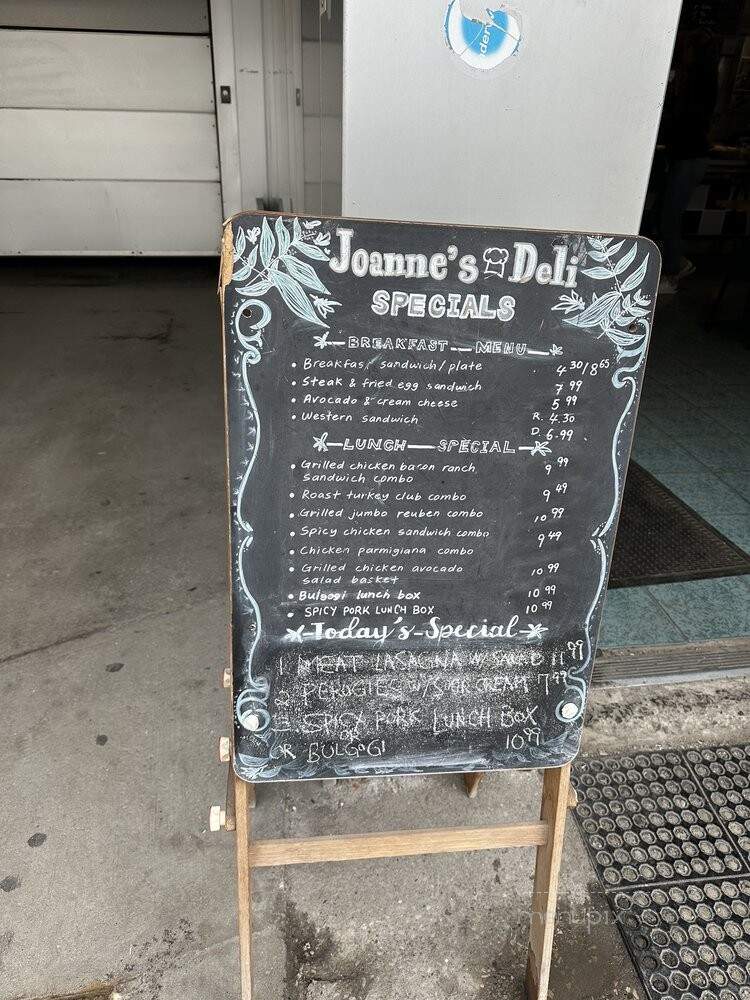 Joanne's Deli
SPECIALS
BREAKFAST MENU
• Breakfast sandwich/plate 4 30/8 65
• Steak & fried egg sandwich 7 99
• Avocado & cream cheese 5 99
• Western sandwich R. 4.30
D. 6.99
LUNCH SPECIAL
• Grilled chicken bacon ranch 9 99
sandwich combo
• Roast turkey club combo 9 49
• Grilled jumbo reuben combo 10 99
• Spicy chicken sandwich combo 9 49
• Chicken parmigiana combo
• Grilled chicken avocado 10 99
salad basket
• Bulgogi lunch box 10 99
• SPICY PORK LUNCH BOX 10 99
Today's Special
1 MEAT LASAGNA W/SALAD 11 99
2 PEROGIES W/SOUR CREAM 7 99
3 SPICY PORK LUNCH BOX
OR BULGOGI 10 99
menupix